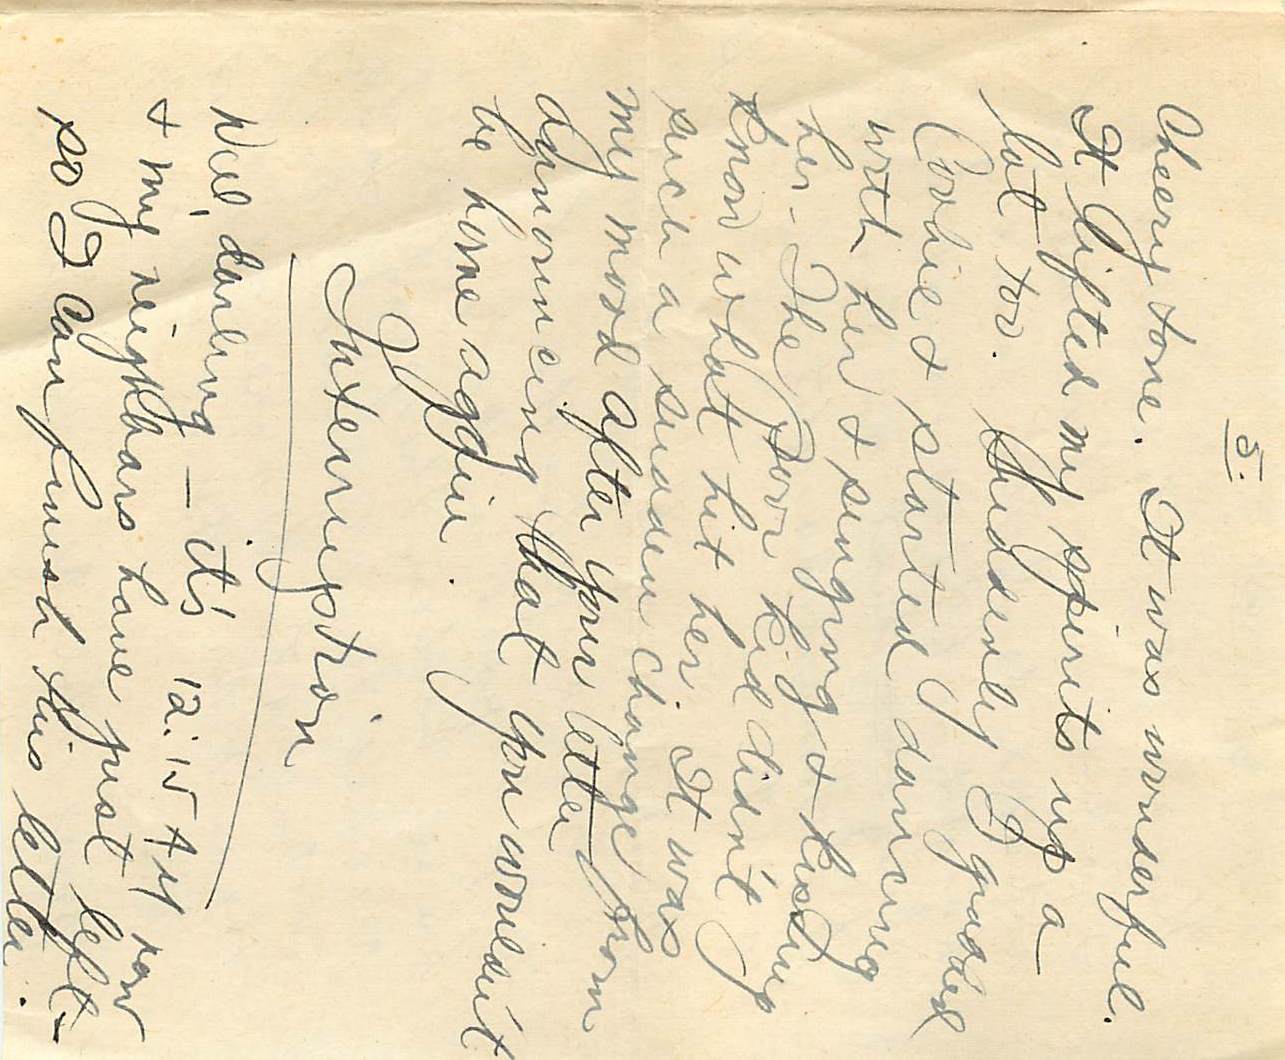 5.
Cheery tone. It was wonderful.
It lifted my spirits up a
lot too. Suddenly I grabbed
Corkie & started dancing
with her & singing & kissing
her. The poor kid didn't
know what hit her. It was
such a sudden change from
my mood after your letter
announcing that you wouldn't
be home again.
Interruption
Well, darling — it's 12:15 AM now
& my neighbors have just left -
so I can finish this letter.